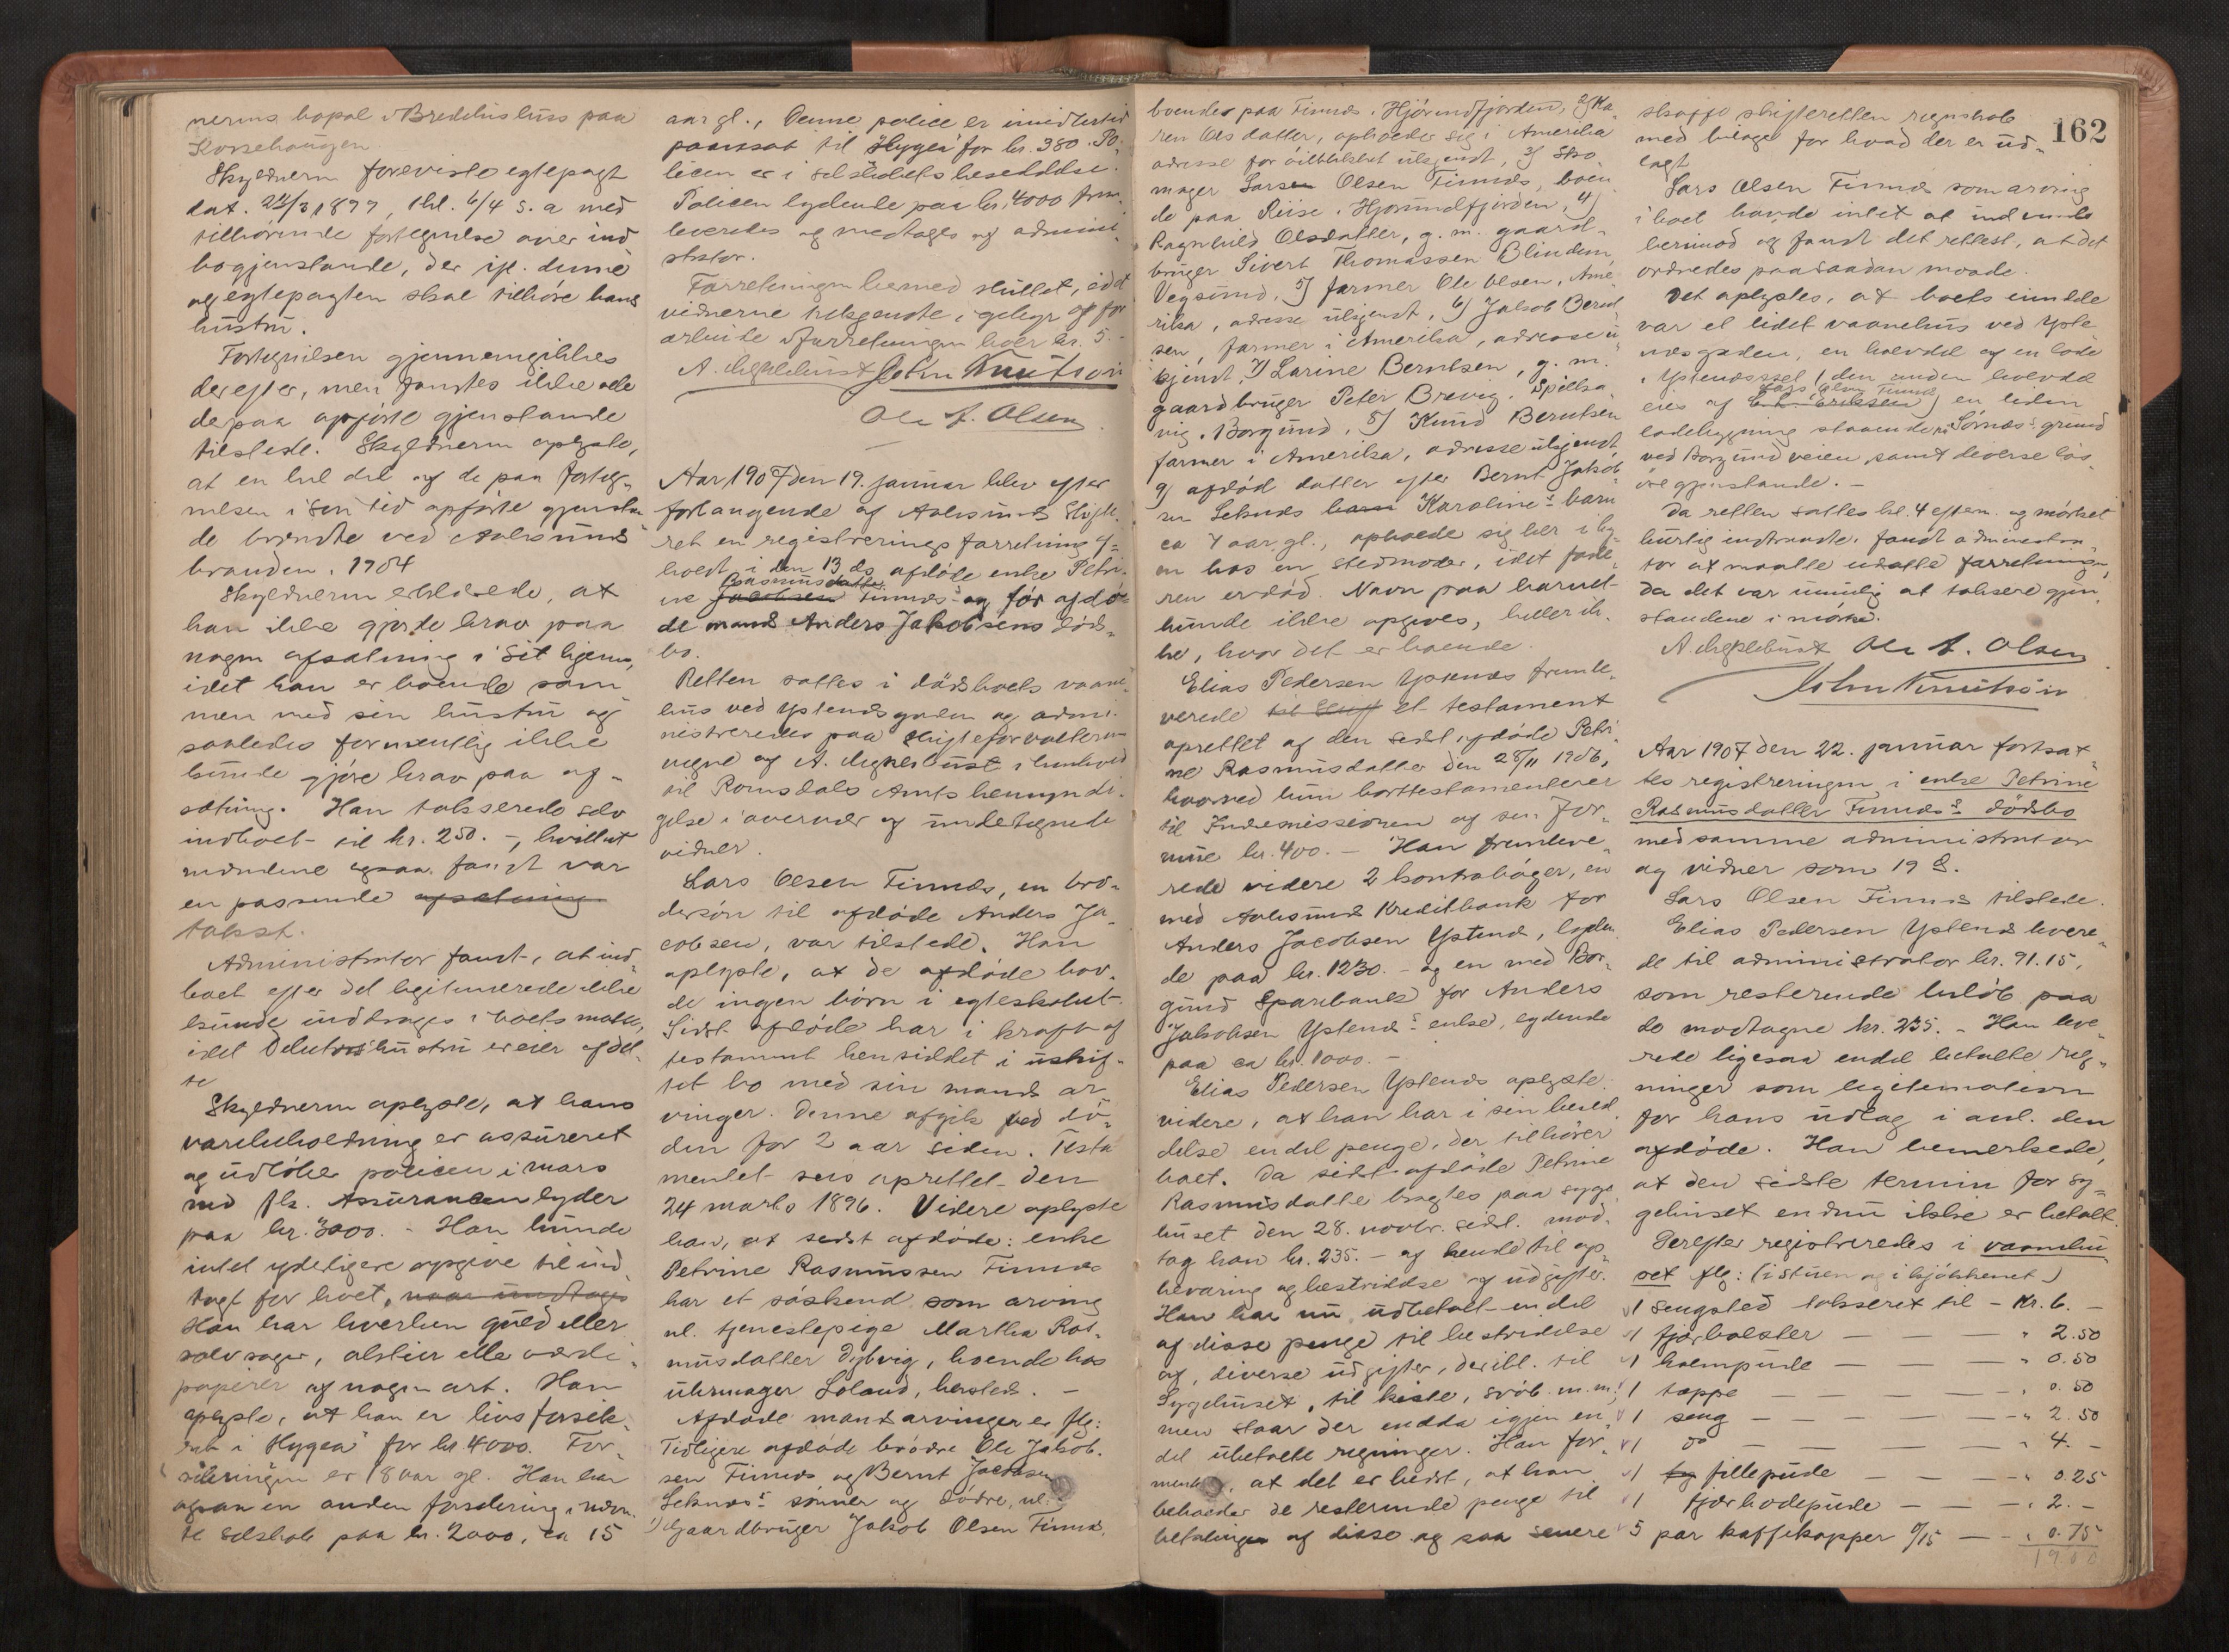 nerens bopæl i Bredelis hus paa
Korsehaugen.
Skyldneren foreviste egtepagt
dat. 24/3 1899, thl. 6/4 s. a med
tilhørende fortegnelse over ind
bogjenstande, der ifl. denne
og egtepagten skal tilhøre hans
hustru.
Fortegnelsen gjennemgikkes
derefter, men fandtes ikke alle
de paa opførte gjenstande
tilstede. Skyldneren oplyste,
at en hel del af de paa forteg-
nelsen i sin tid opførte gjenstan
de brændte ved Aalesunds
branden i 1904
Skyldneren erklærede, at
han ikke gjorde krav paa
nogen afsætning i sit hjem,
idet han er boende sam
men med sin hustru og
saaledes formentlig ikke
kunde gjøre krav paa af-
sætning. Han takserede selv
indboet til kr. 250.-, hvilket
mændene ogsaa fandt var
en passende afsætning
takst.
Administrator fandt, at ind-
boet efter det legitimerede ikke
kunde inddrages i boets masse,
idet hustru er eier af det-
te
Skyldneren oplyste, at hans
varebeholdning er assureret
og udløber policen i mars
md fk. Assurancen lyder
paa kr. 3000.- Han kunde
intet yderligere opgive til ind
tægt for boet, naar undtages
Han har hverken guld eller
sølvsager, aktier eller værdi-
papirer af nogen art. Han
oplyste, at han er livsforsik-
ret i "Hygea" for kr. 4000. For-
sikringen er 18 aar gl. Han har
ogsaa en anden forsikring i nævn
te selskab paa kr. 2000, ca 15
aar gl., Denne police er imidlertid
paavist til "Hygea" for kr. 380. Po-
licen er i selskabets besiddelse.
Policen lydende paa kr. 4000 frem-
leveredes og medtages af admini-
strator.
Forretningen hermed sluttet, idet
vidnerne tilkjendte i gebyr og for
arbeide i forretningen hver kr. 5.-
A. Meplebust John Knutson
Ole A. Olsen
Aar 1907 den 19. januar blev efter
forlangende af Aalesunds Skifte-
ret en registreringsforretning af-
holdt i den 13 ds afdøde enke Petri-
Rasmusdatter
ne Jacobsen Finnes og før afdø-
de mand Anders Jakobsens døds-
bo.
Retten sattes i dødsboets vaane-
hus ved Ystenesgaden og admi-
nistreredes paa Skifteforvalterens
vegne af A. Meplebust i henhold
til Romsdals Amts bemyndi-
gelse i overvær af undertegnede
vidner.
Lars Olsen Finnes, en bro-
dersøn til afdøde Anders Ja-
cobsen, var tilstede. Han
oplyste, at de afdøde hav-
de ingen børn i egteskabet.
Sidst afdøde har i kraft af
testament hensiddet i uskif-
tet bo med sin mands ar
vinger. Denne afgik ved dø-
den for 2 aar siden. Testa
mentet sees oprettet den
24 marts 1896. Videre oplyste
han, at sidst afdøde: enke
Petrine Rasmussen Finnes
har et søskend som arving
nl. tjenestepige Martha Ras-
musdatter Dybvig, boende hos
uhrmager Soland, hersteds. -
Afdøde mands arvinger er flg:
Tidligere afdøde brødre Ole Jakob-
sen Finnes og Bernt Jacobsen
Seknes's sønner og døtre, nl:
1) Gaardbruger Jakob Olsen Finnes,
boende paa Finnes i Hjørundfjorden, 2) Ka-
ren Olsdatter, opholder sig i Amerika
adresse for øieblikket ukjendt, 3) Sko-
mager Lars Olsen Finnes, boen
de paa Riise i Hjørundfjorden, 4)
Ragnhild Olsdatter, g. m. gaard-
bruger Sivert Thomassen Blindem,
Vegsund, 5) farmer Ole Olsen, Ame-
rika, adresse ukjendt, 6) Jakob Bernt
sen, farmer i Amerika, adresse u-
kjendt, 7) Larine Berntsen, g. m.
gaardbruger Peter Brevig, Spilka-
vig, Borgund, 8) Knud Berntsen
farmer i Amerika, adresse ukjendt
9) afdød datter efter Bernt Jakob
sen Seknes barn Karoline's barn
ca 4 aar gl., opholder sig her i by
en hos en stedmoder, idet fade-
ren er død. Navn paa barnet
kunde ikke opgives, heller ik-
ke, hvor det er boende.
Elias Pedersen Ystenes fremle-
verede til Skift et testament
oprettet af den sidst afdøde Petri-
ne Rasmusdatter den 28/11 1906,
hvorved hun borttestamenterer
til Indremissionen af sin for-
mue kr. 400.- Han fremleve-
rede videre 2 kontrabøger, en
med Aalesunds Kreditbank for
Anders Jacobsen Ystenes, lyden
de paa kr. 1230.- og en med Bor-
gund Sparebank for Anders
Jakobsen Ystenes's enke, lydende
paa ca kr. 1000.-
Elias Pedersen Ystenes oplyste
videre, at han har i sin besid-
delse endel penge, der tilhører
boet. Da sidst afdøde Petrine
Rasmusdatter bragtes paa syge-
huset den 28. novbr. sidstl. mod-
tog han kr. 235.- af hende til op-
bevaring og bestridelse af udgifter.
Han har nu udbetalt endel
af disse penge til bestridelse
af diverse udgifter, deribl. til
Sygehuset, til kiste, svøb m.m.;
men staar der endda igjen en
del ubetalte regninger. Han for-
mente, at det er bedst, at han
beholder de resterende penge til
betaling af disse og saa senere
162
skaffe skifteretten regnskab
med bilage for hvad der er ud-
lagt
Lars Olsen Finnes som arving
i boet havde intet at indvende
herimod og fandt det rettest, at det
ordnedes paa saadan maade.
Det oplystes, at boets eiendele
var et lidet vaanehus ved Yste
nesgaden, en halvdel af en løde
i Ystenesset (den anden halvdel
Lars Olsen Finnes
eies af E. L. Eriksen) en liden
ladebygning staaende på Sørnes's grund
ved Borgundveien, samt diverse løs-
øregjenstande. -
Da retten sattes kl. 4 efterm. og mørket
hurtig indtraadte, fandt administra
tor at maatte udsætte forretningen,
da det var umulig at taksere gjen-
standene i mørke.
A Meplebust Ole A. Olsen
John Knutson
Aar 1907 den 22. januar fortsat-
tes registreringen i enke Petrine
Rasmusdatter Finnes's dødsbo
med samme administrator
og vidner som 19 ds.
Lars Olsen Finnes tilstede.
Elias Pedersen Ystenes levere-
de til administrator kr. 91.15,
som resterende beløb paa
de modtagne kr. 235.- Han leve-
rede ligesaa endel betalte reg-
ninger som legitimation
for hans udlæg i anl. den
afdøde. Han bemerkede,
at den sidste termin for sy-
gehuset endnu ikke er betalt.
Derefter registreredes i vaanehu-
set flg: (i stuen og i kjøkkenet)
1 sengsted takseret til - Kr. 6.-
1 fjærbolster — — " 2.50
1 halmpude — — " 0.50
1 tæppe — — — " 0.50
1 seng — — — " 2.50
1 do — — — " 4.-
1 fillepude — — " 0.25
1 fjærhodepude — — " 2.-
5 par kaffekopper a/15 — " 0.75
19.00